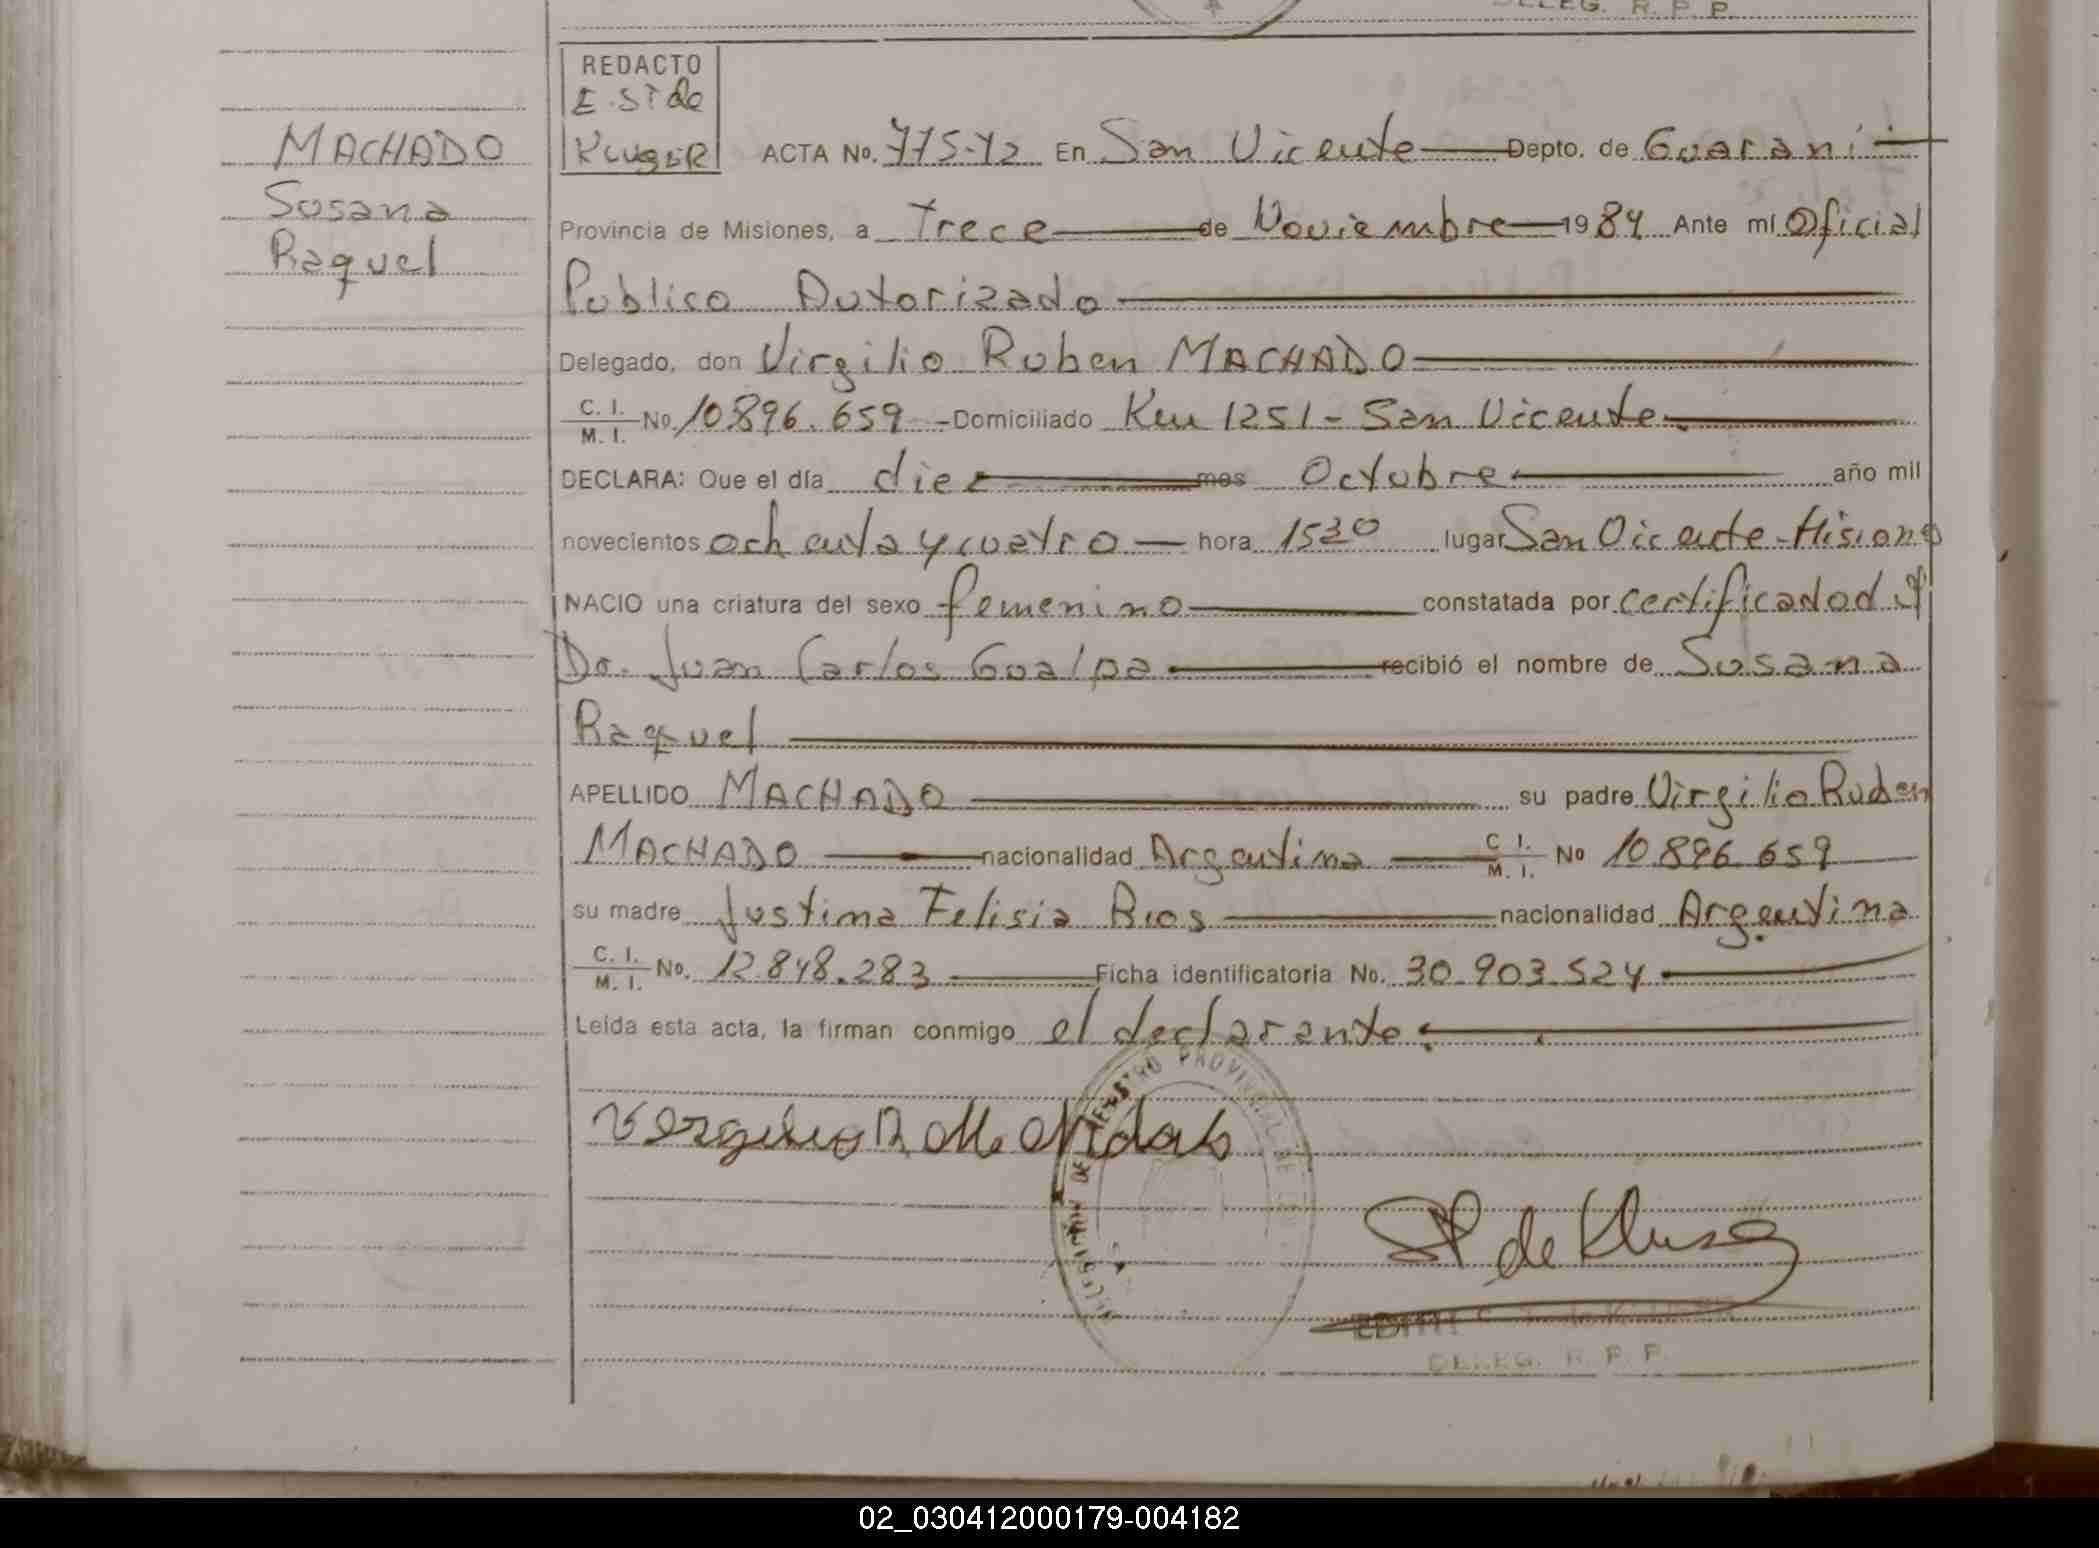 DELEG. R. P. P.
REDACTO
E. ST de
KLUGER
MACHADO
Susana
Raquel
ACTA No. 775-T2 En San Vicente Depto. de Guarani
Provincia de Misiones, a Trece de Noviembre 1984 Ante mí Oficial
Publico Autorizado
Delegado, don Virgilio Ruben MACHADO
C. I. / M. I. No. 10.896.659 - Domiciliado Km 1251 - San Vicente.
DECLARA: Que el día diez mes Octubre año mil
novecientos ochenta y cuatro hora 1530 lugar San Vicente - Misiones
NACIO una criatura del sexo femenino constatada por certificado d
Dr. Juan Carlos Gualpa recibió el nombre de Susana
Raquel
APELLIDO MACHADO su padre Virgilio Ruben
MACHADO nacionalidad Argentina C. I. / M. I. No 10.896.659
su madre Justina Felisia Rios nacionalidad Argentina
C. I. / M. I. No. 12.848.283 Ficha identificatoria No. 30.903.524
Leída esta acta, la firman conmigo el declarante.
DELEGACIÓN DEL REGISTRO PROVINCIAL DE
ST de Kluger
EDITH
DELEG. R. P. P.
02_030412000179-004182